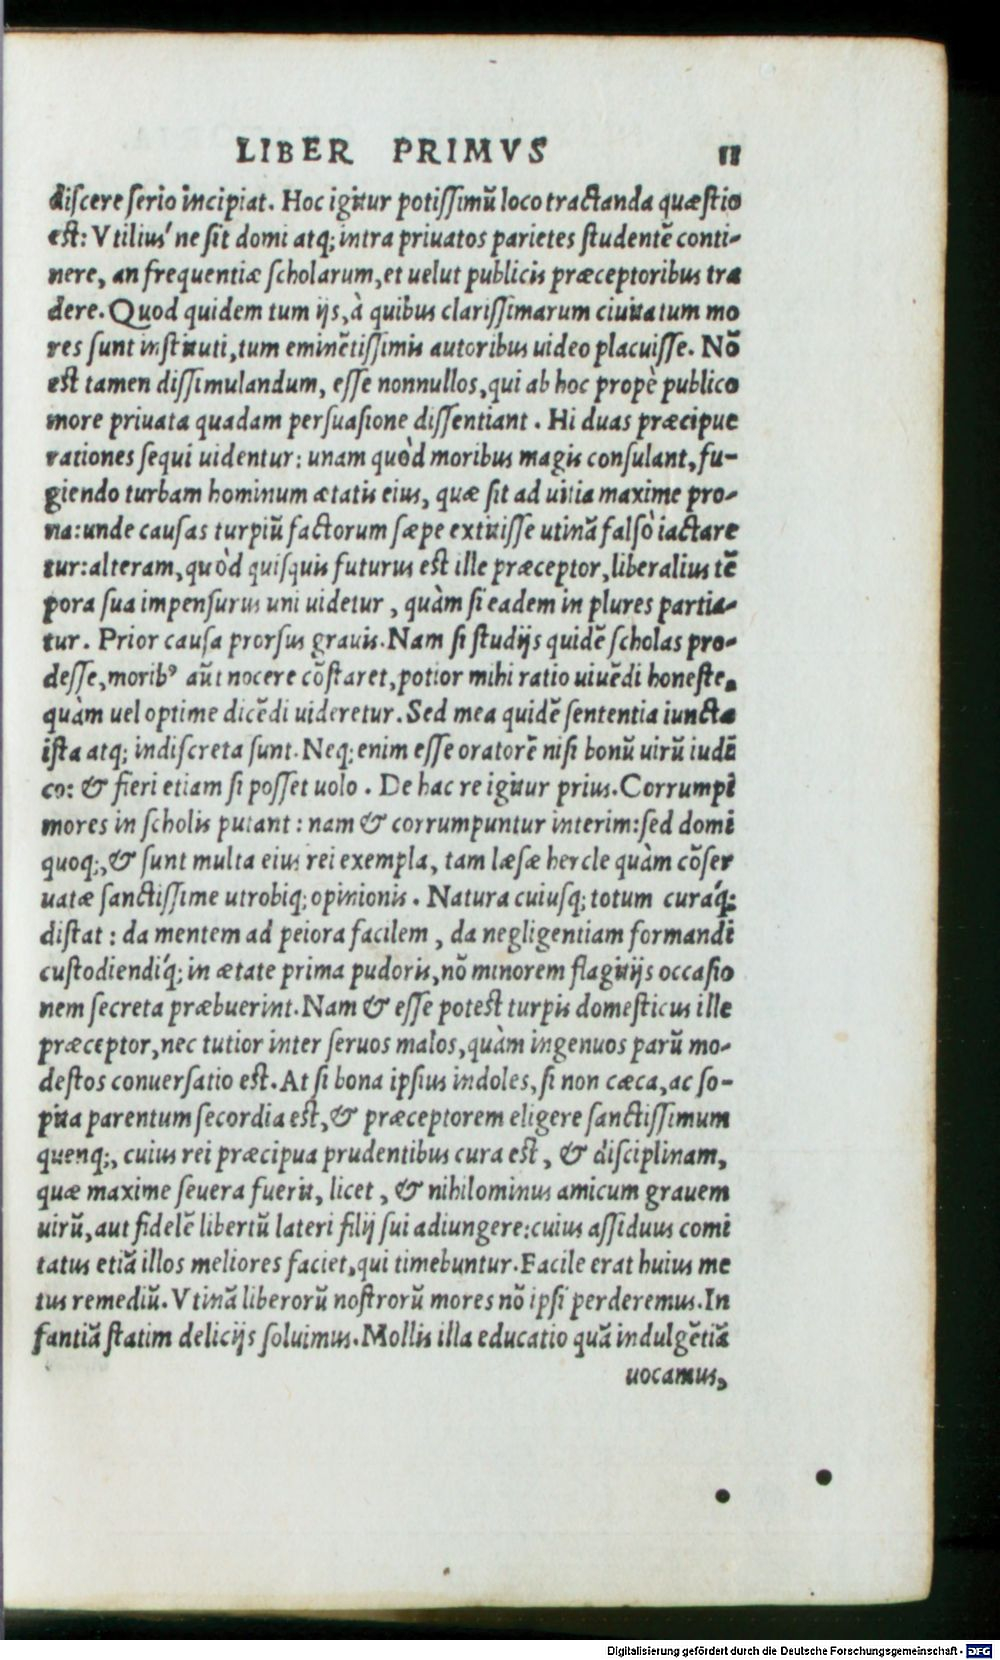 LIBER PRIMVS 11
discere serio incipiat. Hoc igitur potissimũ loco tractanda quæstio
est: Vtilius´ ne sit domi atq; intra priuatos parietes studentẽ conti-
nere, an frequentiæ scholarum, et uelut publicis præceptoribus tra
dere. Quod quidem tum ijs, à quibus clarissimarum ciuitatum mo
res sunt instituti, tum eminẽtissimis autoribus uideo placuisse. Nõ
est tamen dissimulandum, esse nonnullos, qui ab hoc propè publico
more priuata quadam persuasione dissentiant. Hi duas præcipue
rationes sequi uidentur: unam quòd moribus magis consulant, fu-
giendo turbam hominum ætatis eius, quæ sit ad uitia maxime pro-
na: unde causas turpiũ factorum sæpe extitisse utinã falsò iactare
tur: alteram, quòd quisquis futurus est ille præceptor, liberalius tẽ
pora sua impensurus uni uidetur, quàm si eadem in plures partia-
tur. Prior causa prorsus grauis. Nam si studijs quidẽ scholas pro-
desse, moribꝰ aũt nocere cõstaret, potior mihi ratio uiuẽdi honeste,
quàm uel optime dicẽdi uideretur. Sed mea quidẽ sententia iuncta
ista atq; indiscreta sunt. Neq; enim esse oratorẽ nisi bonũ uirũ iudi
co: & fieri etiam si posset uolo. De hac re igitur prius. Corrumpi
mores in scholis putant: nam & corrumpuntur interim: sed domi
quoq;, & sunt multa eius rei exempla, tam læsæ hercle quàm cõser
uatæ sanctissime utrobiq; opinionis. Natura cuiusq; totum curáq;
distat: da mentem ad peiora facilem, da negligentiam formandi
custodiendíq; in ætate prima pudoris, nõ minorem flagitijs occasio
nem secreta præbuerint. Nam & esse potest turpis domesticus ille
præceptor, nec tutior inter seruos malos, quàm ingenuos parũ mo-
destos conuersatio est. At si bona ipsius indoles, si non cæca, ac so-
pita parentum secordia est, & præceptorem eligere sanctissimum
quenq;, cuius rei præcipua prudentibus cura est, & disciplinam,
quæ maxime seuera fuerit, licet, & nihilominus amicum grauem
uirũ, aut fidelẽ libertũ lateri filij sui adiungere: cuius assiduus comi
tatus etiã illos meliores faciet, qui timebuntur. Facile erat huius me
tus remediũ. Vtinã liberorũ nostrorũ mores nõ ipsi perderemus. In
fantiã statim delicijs soluimus. Mollis illa educatio quã indulgẽtiã
uocamus,
Digitalisierung gefördert durch die Deutsche Forschungsgemeinschaft - DFG